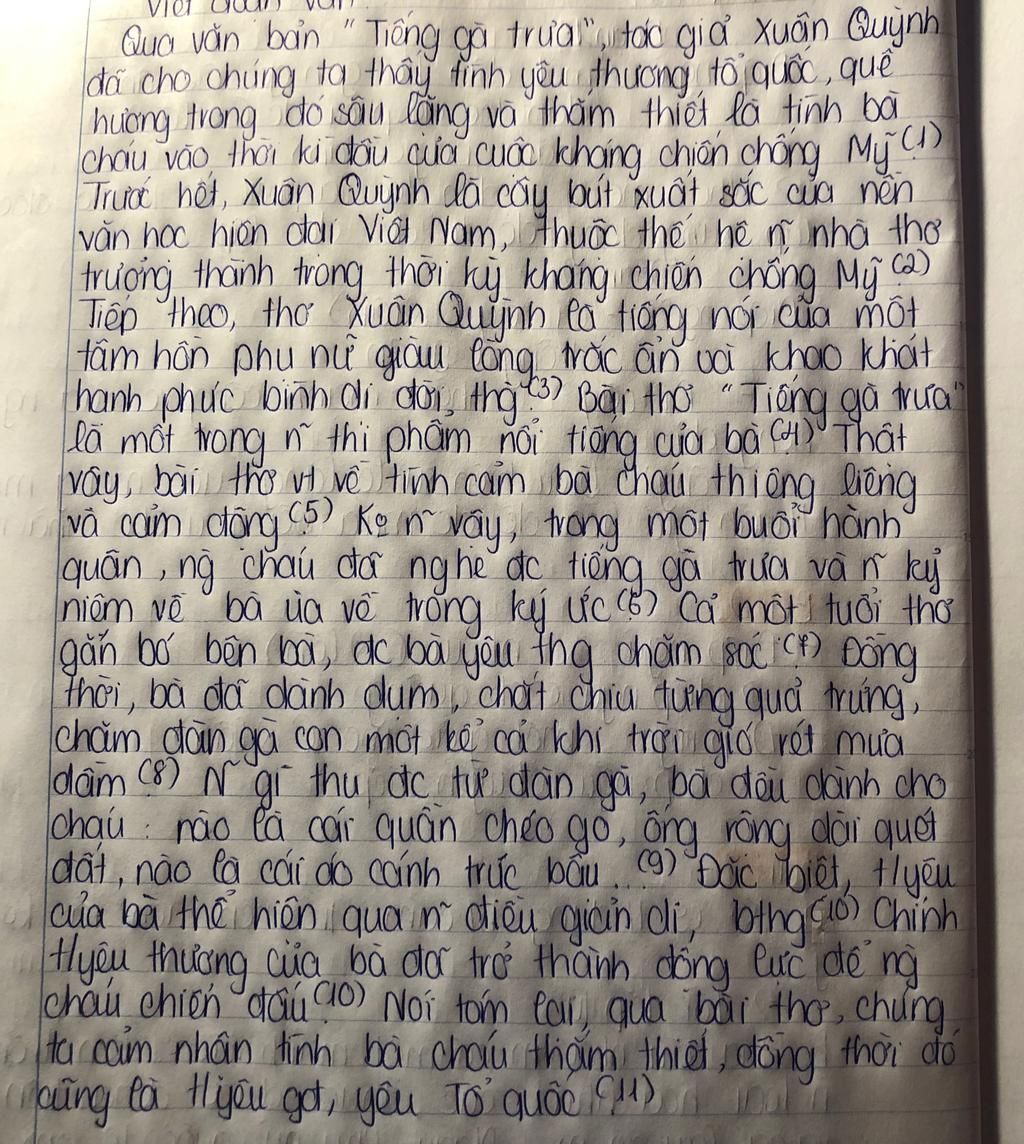 Viết đoạn văn.
Qua văn bản "Tiếng gà trưa", tác giả Xuân Quỳnh
đã cho chúng ta thấy tình yêu thương tổ quốc, quê
hương trong đó sâu lắng và thắm thiết là tình bà
cháu vào thời kì đầu của cuộc kháng chiến chống Mỹ (1)
Trước hết, Xuân Quỳnh là cây bút xuất sắc của nền
văn học hiện đại Việt Nam, thuộc thế hệ n~ nhà thơ
trưởng thành trong thời kỳ kháng chiến chống Mỹ (2)
Tiếp theo, thơ Xuân Quỳnh là tiếng nói của một
tâm hồn phụ nữ giàu lòng trắc ẩn và khao khát
hạnh phúc bình dị đời thg (3) Bài thơ "Tiếng gà trưa"
là một trong n~ thi phẩm nổi tiếng của bà (4) Thật
vậy, bài thơ vt về tình cảm bà cháu thiêng liêng
và cảm động (5) Ko n~ vậy, trong một buổi hành
quân, ng cháu đã nghe đc tiếng gà trưa và n~ kỷ
niệm về bà ùa về trong ký ức (6) Cả một tuổi thơ
gắn bó bên bà, đc bà yêu thg chăm sóc (7) Đồng
thời, bà đã dành dụm, chắt chiu từng quả trứng,
chăm đàn gà con một kể cả khi trời gió rét mưa
dầm (8) N~ gì thu đc từ đàn gà, bà đều dành cho
cháu: nào là cái quần chéo go, ống rộng dài quét
đất, nào là cái áo cánh trúc bâu... (9) Đặc biệt, t/yêu
của bà thể hiện qua n~ điều giản dị, bthg (10) Chính
t/yêu thương của bà đã trở thành động lực để ng
cháu chiến đấu (10) Nói tóm lại, qua bài thơ, chúng
ta cảm nhận tình bà cháu thắm thiết, đồng thời đó
cũng là t/yêu gđ, yêu Tổ quốc (11)